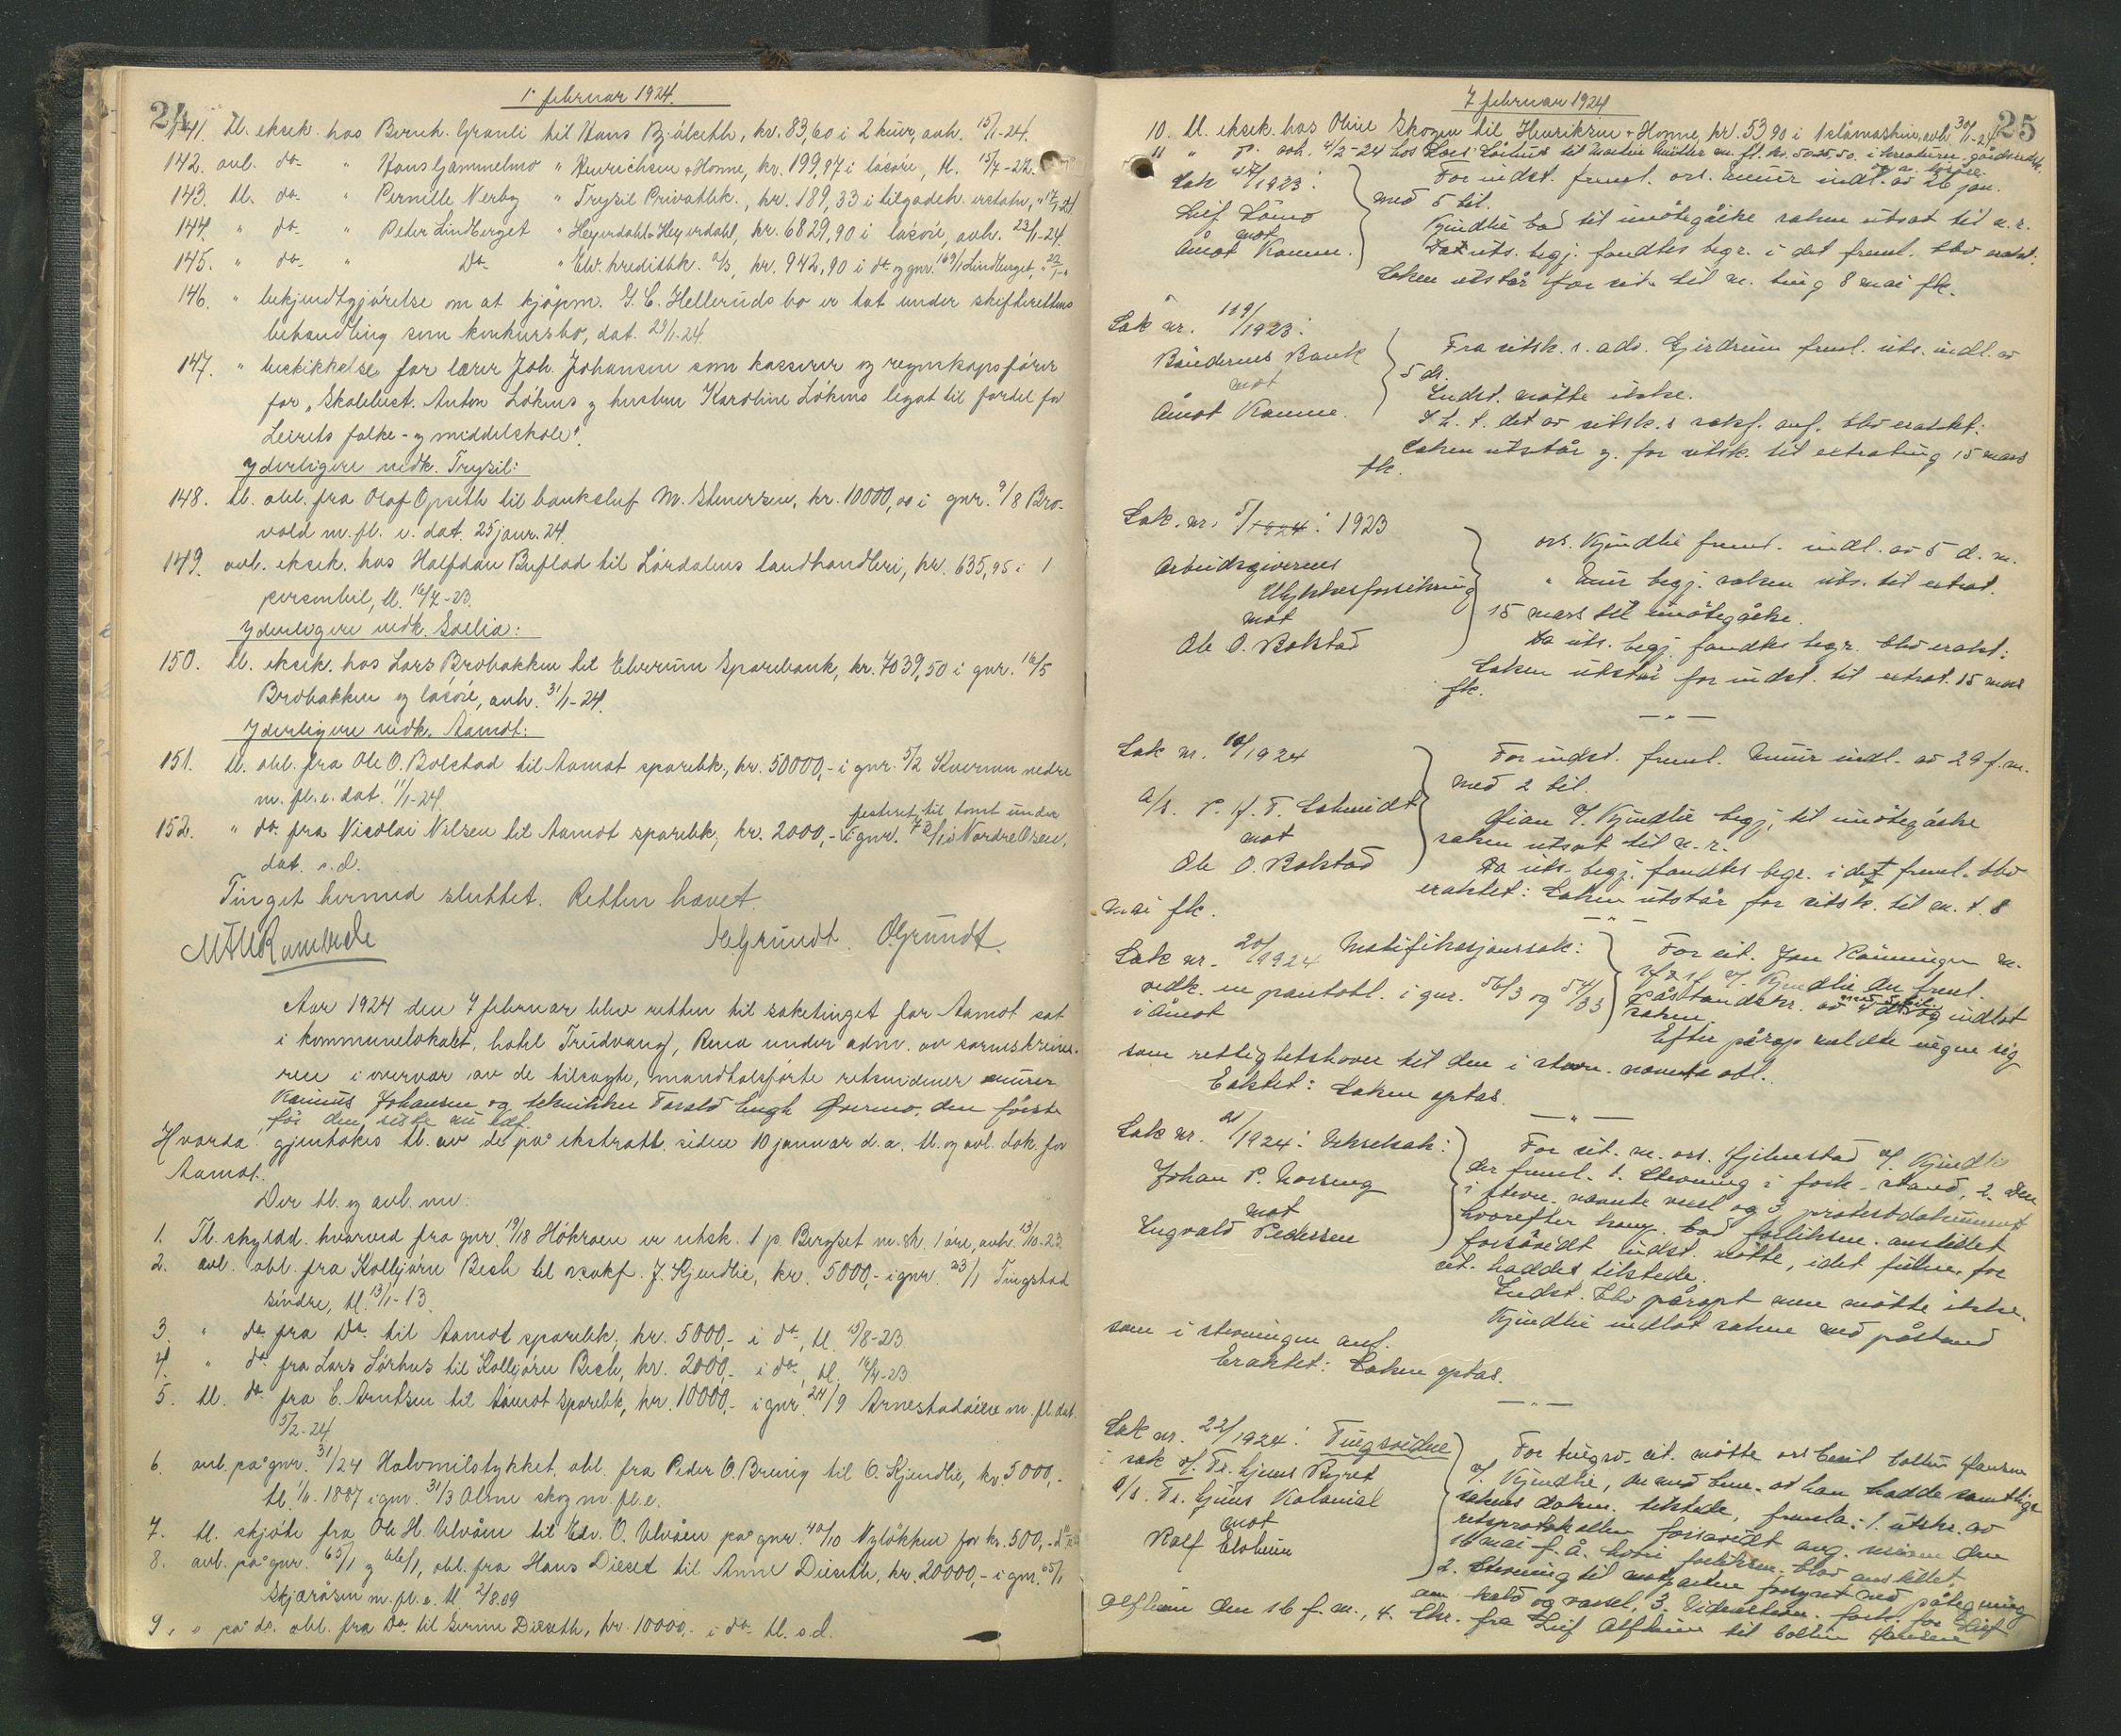 24
1. februar 1924.
141. tl. eksek. hos Bernh. Granli til Hans Bjålseth, kr. 83,60 i 2 kuer, avh. 15/1-24.
142. avl. do. " Hans Gammelmo " Henrichsen & Honne, kr. 199,97 i løsøre, tl. 15/7-22.
143. tl. do. " Pernille Nerby " Trysil Privatbk., kr. 189,33 i tilgodeh. erstatn., " 17/1-24
144. " do. " Peder Lindberget " Heyerdahl & Heyerdahl, kr. 6829,90 i løsøre, avh. 23/1-24.
145. " do. " Do. " Elv. kreditbk. a/s, kr. 942,90 i do. og gnr. Lindberget,
146. " bekjendtgjørelse om at kjøpm. G. C. Helleruds bo er tat under skifterettens
behandling som konkursbo, dat. 29/1-24.
147. " beskikkelse for lærer Joh. Johansen som kasserer og regnskapsfører
for „Skolebest. Anton Løkens og hustru Karoline Løkens legat til fordel for
Leirets folke- og middelskole".
Yderligere vedk. Trysil:
148. tl. obl. fra Olaf Opseth til banksjef M. Stenersen, kr. 10000,00 i gnr. 9/8 Bro-
vold m. fl. e. dat. 25 januar. 24.
149. avl. eksek. hos Halfdan Buflod til Lørdalens landhandleri, kr. 635,95 i 1
personbil, tl. 16/7-23.
Yderligere vedk. Sollia:
150. tl. eksek. hos Lars Brobakken til Elverum Sparebank, kr. 7039,50 i gnr. 16/5
Brobakken og løsøre, avh. 31/1-24.
Yderligere vedk. Aamot:
151. tl. obl. fra Ole O. Bolstad til Aamot sparebk., kr. 50000,- i gnr. 5/2 Kvernen nedre
m. fl. e. dat. 11/1-24.
152. " do. fra Nicolai Nilsen til Aamot sparebk., kr. 2000,- i festeret til tomt under gnr. 72/1 i Nordre Osen,
dat. s. d.
Tinget hermed sluttet. Retten hævet.
HGrundt. OGrundt.
Aar 1924 den 7 februar blev retten til saketinget for Aamot sat
i kommunelokalet, hotel Trudvang, Rena under adm. av sorenskrive-
ren i overvær av de tilsagte, mandtalsførte retsvidner murer
Rasmus Johansen og tekniker Torald Engh Øvermo, den første
for den siste nu edf.
Hvorda: gjentokes tl. av de på ekstratt. siden 10 januar d. a. tl. og avl. dok. for
Aamot.
Der tl. og avl. nu:
1. Tl. skyldd. hvorved fra gnr. 19/18 Hökroen er utsk. 1 p. Berget m. sk. 1 øre, avh. 13/10-23.
2. avl. obl. fra Kolbjörn Bech til o.r.sakf. J. Kjendlie, kr. 5000,- i gnr. 23/1 Tingstad
søndre, tl. 13/1-13.
3. " do. fra Do. til Aamot sparebk., kr. 5000,- i do., tl. 15/8-23
4. " do. fra Lars Sørhus til Kolbjörn Bech, kr. 2000,- i do., tl. 16/4-23
5. tl. do. fra C. Arntsen til Aamot Sparebk, kr. 10000,- i gnr. 24/9 Arnestadöien m. fl. dat.
5/2-24
6. avl. på gnr. 31/24 Halvmilstykket, obl. fra Peder O. Brenig til O. Kjendlie, kr. 5000,-
tl. 1/11. 1887 i gnr. 31/3 Alme skog m. fl. e.
7. tl. skjöte fra Ole H. Ulvåen til Edv. O. Ulvåen på gnr. 40/10 Nyløkken for kr. 500,-
8. avl. på gnr. 65/1 og 66/1, obl. fra Hans Dieset til Anne Dieseth, kr. 20000,- i gnr. 65/1
Skjæråsen m. fl. e. tl. 2/8.09
9. " på do. obl. fra Do. til Gerine Dieseth, kr. 10000,- i do. tl. s. d.
7 februar 1924
25
10. tl. eksek. hos Oline Skogen til Henriksen & Honne, kr. 53,90 i 1 slåmaskin, avh. 30/1-24
11 " do. avh. 4/2-24 hos Lars Lörhus til Martin Müller m. fl. kr. 5025,50. i kreaturer, gårdsredsk.
og a. lösöre.
Sak 47/1923:
Leif Lömo
mot
Åmot Komm.
For indst. freml. ors. Muur indl. av 26 jan.
med 5 bil.
Kjendlie bad til imötegåelse saken utsat til n. r.
Da uts. begj. fandtes begr. i det freml. blev eraktet:
Saken utstår for cit. til m. ting 8 mai fk.
Sak nr. 119/1923:
Böndernes Bank
mot
Åmot Komm.
Fra citsk. s. adv. Gjerdrum freml. uts. indl. av
5 ds.
Indst. mötte ikke.
I h. t. det av citsk.s sakf. anf. blev eraktet:
Saken utstår g. for citsk. til extrating 15 mars
fk.
Sak. nr. 5/1924: 1923
Arbeidsgivernes
Ulykkesforsikring
mot
Ole O. Bolstad
ors. Kjendlie freml. indl. av 5 d. m.
" Muur begj. saken uts. til extrat.
15 mars til imötegåelse.
Da uts. begj. fandtes begr. blev eraktet:
Saken utstår for indst. til extrat. 15 mars
fk.
— " —
Sak nr. 10/1924
a/s. P. H. T. Schmidt
mot
Ole O. Bolstad
For indst. freml. Muur indl. av 29 f. m.
med 2 bil.
Gian v/ Kjendlie begj. til imötegåelse
saken utsat til n. r.
Da uts. begj. fandtes begr. i det freml. blev
eraktet: Saken utstår for citsk. til m. t. 8
mai fk.
— " —
Sak nr. 20/1924 Motifikasjonssak:
vedk. en pantobl. i gnr. 56/3 og 54/33
i Åmot
For cit. Jon Rönningen m.
v/ Kjendlie der freml.
påstandskr. av 4 ds. med 5 bil. og indlot
saken.
Efter påråp meldte ingen sig
som rettighetshaver til den i stevn. nævnte obl.
Eraktet: Saken optas.
— " —
Sak nr. 21/1924: Vekselsak:
Johan P. Norseng
mot
Ingvald Pedersen
For cit. m. ors. Hjelmstad v/ Kjendlie
der freml. 1. Stevning i fork. stand, 2. den
i stevn. nævnte veksl og 3. protestdokument
hvorefter han bad forliksm. anstillet
forsåvidt indst. mötte, idet fuldm. for
cit. hadde tilstede.
Indst. blev påropt men mötte ikke.
Kjendlie indlot saken med påstand
som i stevningen anf.
Eraktet: Saken optas.
— " —
Sak nr. 22/1924: Tingsvidne
i sak v/ Tr. Gjems Byret
a/s. Tr. Gjems Kolonial
mot
Rolf Elvheim
For tingsv. cit. mötte ors Emil Collin Hansen
v/ Kjendlie, der med bem. at han hadde samtlige
sakens dokm. tilstede, fremla: 1. utskr. av
retsprotokollen forsåvidt ang. den
16 mai f. å. hvori forliksm. blev anstillet,
2. Stevning til motparten forsynt med påtegning
om kald og varsel, 3. Vidnestevn. fork. for Leif
Alfheim den 16 f. m., 4. Skr. fra Leif Alfheim til Collin Hansen